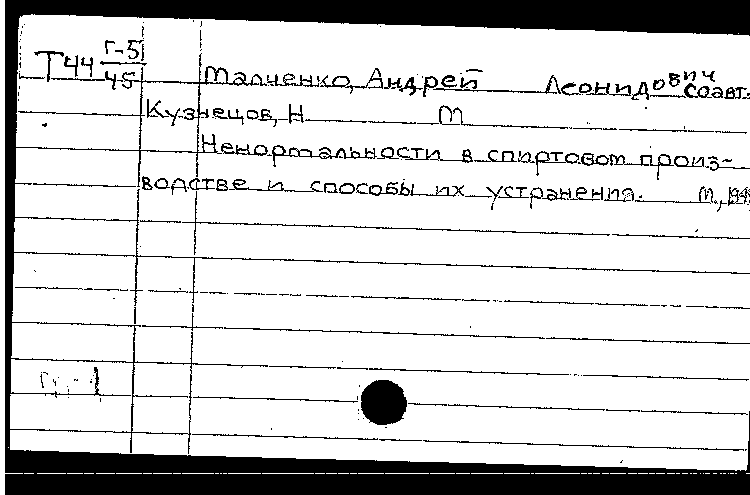 Т44 Г-5/45 Малченко, Андрей Леонидович соавт.
Кузнецов, Н. М
Ненормальности в спиртовом произ-
водстве и способы их устранения. М.,